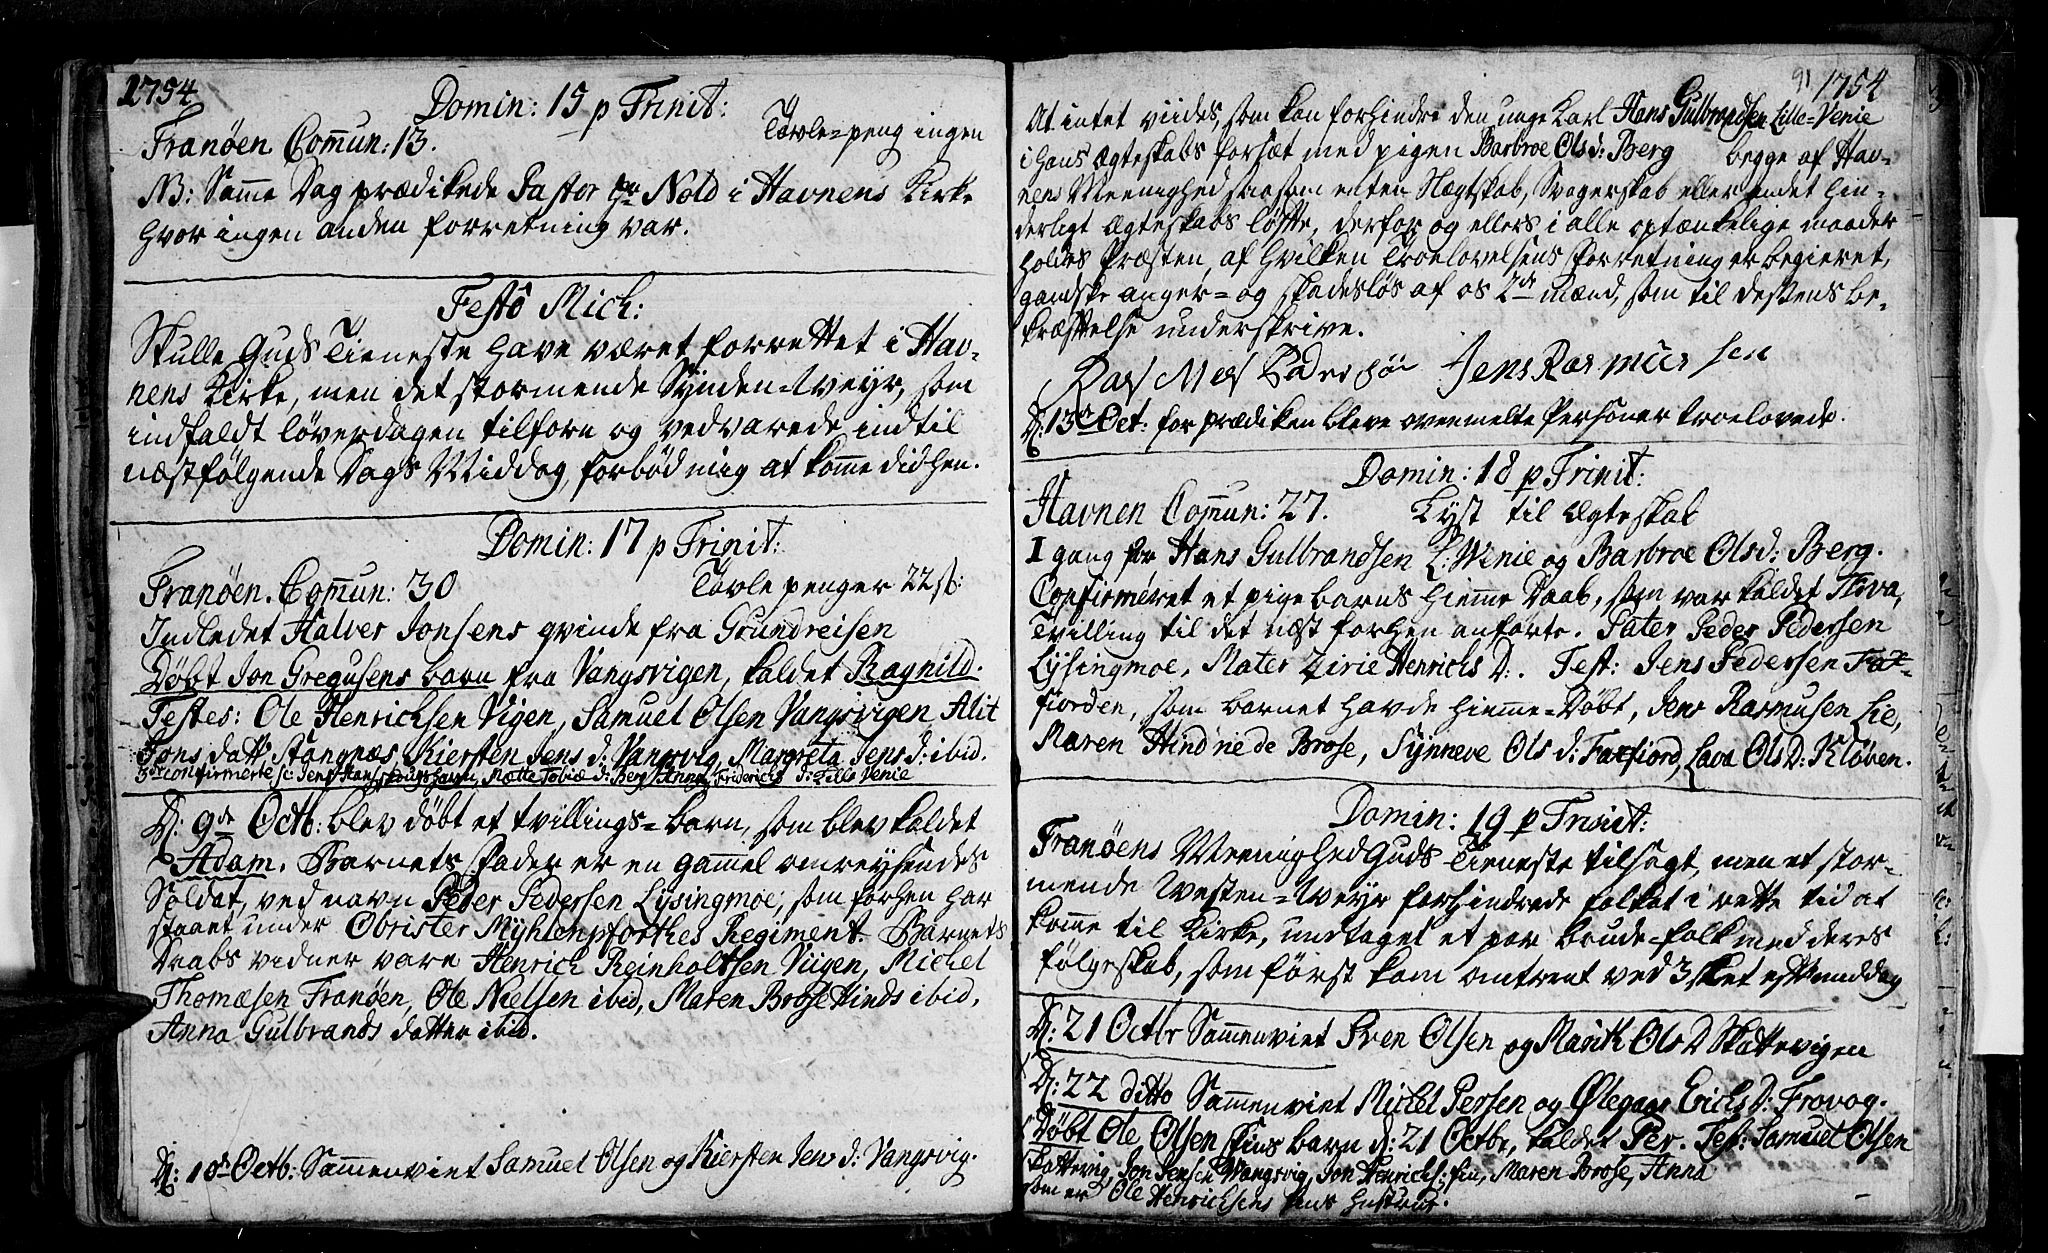 1754
Domin: 15 p Trinit:
Tavle-peng ingen
Tranöen Com̄un: 13.
NB: Samme Dag prædikede Pastor Hr Nold i Havnens Kirke
hvor ingen anden forretning var.
Festo Mich:
Skulle Guds Tieneste have været forrettet i Hav-
nens Kirke, men det stormende Synden-Weyr, som
indfaldt löverdagen tilforn og vedvarede indtil
næstfölgende Dags Middag, forböd mig at komme didhen.
Domin: 17 p Trinit:
Tranöen. Com̄un: 30 Tavle penger 22 s:
Indledet Halver Jonsens qvinde fra Grundreisen
Döbt Jon Gregusens barn fra Vangsvigen, kaldet Ragnild.
Testes: Ole Henrichsen Vigen, Samuel Olsen Vangsvigen, Alit
Jons datt. Stangnæs, Kiersten Jens d: Vangsvig, Margreta Jens d: ibid.
confirmerte sc: Jens Hans, Mætte Tobiæ d: Berg, Anna Friderichs d: Lille Venie
D: 9de Octb: blev döbt et tvillings-barn, som blev kaldet
Adam. Barnets fader er en gam̄el omreysendes
Soldat, ved navn Peder Pedersen Lysingmoe, som forhen har
staaet under Obrister Myhlenpforthes Regiment. Barnets
Daabs vidner vare Henrich Reinholtsen Viigen, Michel
Thomæsen Tranöen, Ole Nielsen ibid, Maren Brose Hinds ibid,
Anna Gulbrands datter ibid.
D: 10de Octb: Sammenviet Samuel Olsen og Kiersten Jens d: Vangsvig.
91 1754
At intet viides, som kan forhindre den unge Karl Hans Gulbrandsen Lille-Venie
i hans ægteskabs forsæt med pigen Barbroe Olsd: Berg begge af Hav-
nens Meenighed saasom enten Slægtskab, Svogerskab eller andet hin-
derligt ægteskabs löfte, derfor og ellers i alle optænkelige maader
holdes Præsten, af hvilken Troelovelsens forretning er begieret,
gandske anger- og skadeslös af os 2de mænd, som til dessens be-
kræftelse underskrive.
Jens Rasmussen
D: 13de Oct: for prædiken bleve ovenmelte Personer troelovede.
Domin: 18 p Trinit:
Havnen Com̄un: 27. Lyst til Ægteskab
I gang for Hans Gulbrandsen L: Wenie og Barbroe Olsd: Berg.
Confirmeret et pigebarns hiemme Daab, som var kaldet
Tvilling til det næst forhen anforte. Pater Peder Pedersen
Lysingmoe, Mater Zirie Henrichs D:. Test: Jens Pedersen Fax-
fiorden, som barnet havde hiemme-döbt, Jens Rasmusen Lie,
Maren Hind'rie de Brose, Synneve Ols d: Faxfiord, Lava Ols D: Klöven.
Domin: 19 p Trinit:
Tranöens Meenighed Guds Tieneste tilsagt, men et stor-
mende Westen-Weyr forhindrede folket i rette tid at
komme til Kirke, undtaget et par brude-folk med deres
fölgeskab, som först kom omtrent ved 3 slet eftermiddag
D: 21 Octbr Sammenviet Sven Olsen og Marith Ols D Skattevigen
D: 22 ditto Sammenviet Michel Persen og Ölegaar Erichs D: Frovog.
Döbt Ole Olsen Fins barn d: 21 Octbr, kaldet Per. Test: Samuel Olsen
Skattevig, Jon Jensen Wangsvig, Jon Henrichs: fin, Maren Brose, Anna
som er Ole Henrichsens fins hustrue.